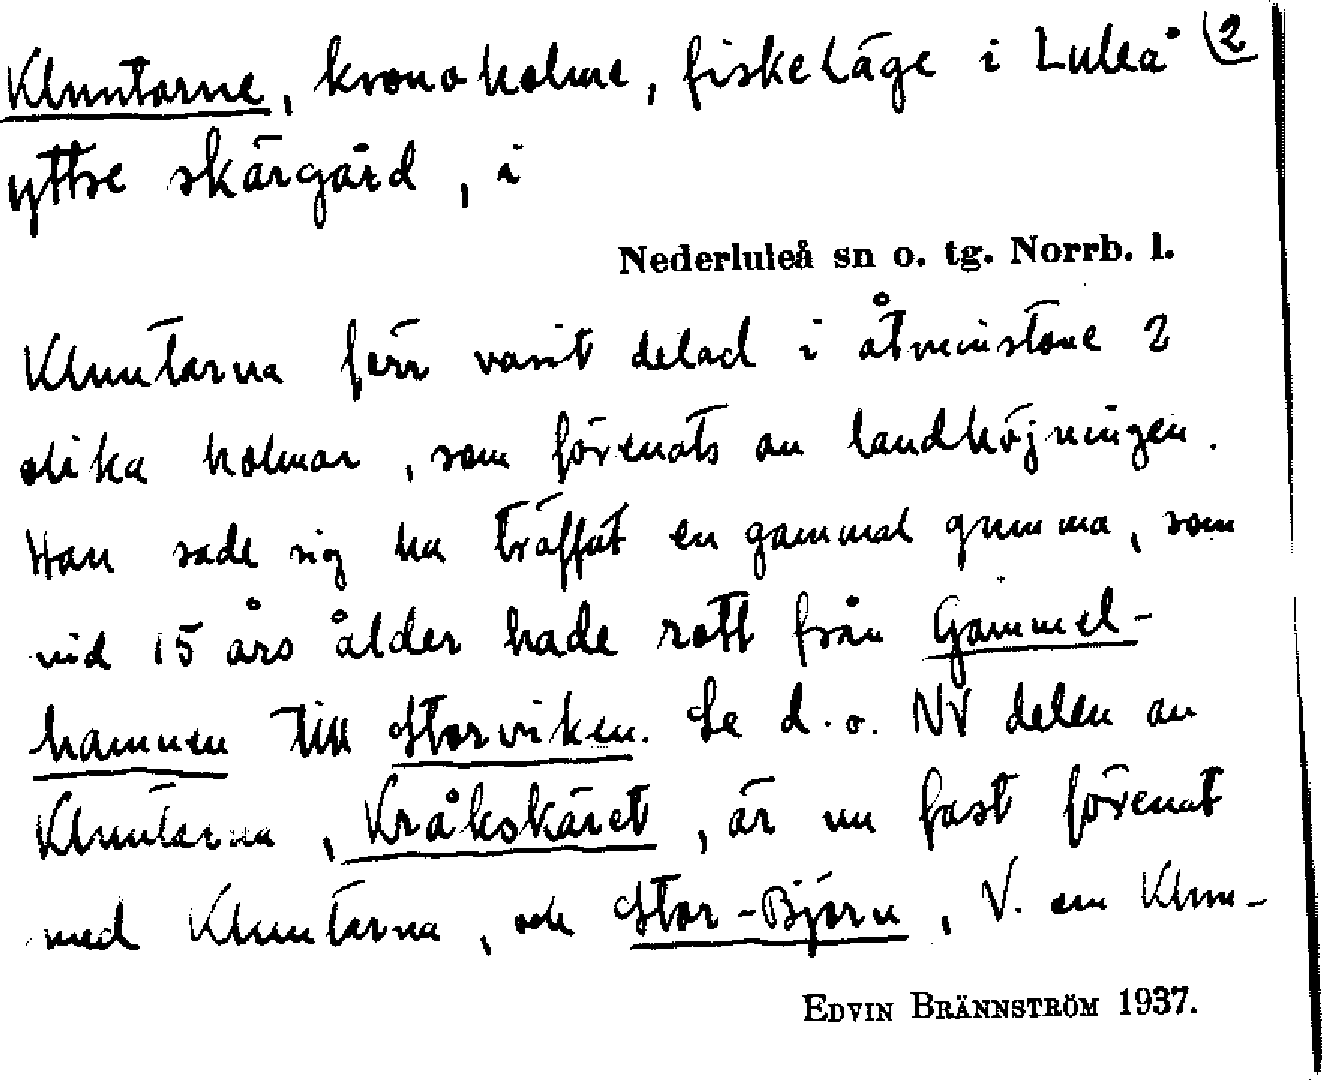 Kluntarne, kronoholme, fiskeläge i Luleå (2
yttre skärgård, i
Nederluleå sn o. tg. Norrb. l.
Kluntarna förr varit delad i åtminstone 2
olika holmar, som förenats av landhöjningen.
Han sade sig ha träffat en gammal gumma, som
vid 15 års ålder hade rott från Gammel-
hamnen till Storviken. Se d.o. NV delen av
Kluntarna, Kråkskäret, är nu fast förenat
med Kluntarna, och Stor-Björn, V. om Klun-
EDVIN BRÄNNSTRÖM 1937.